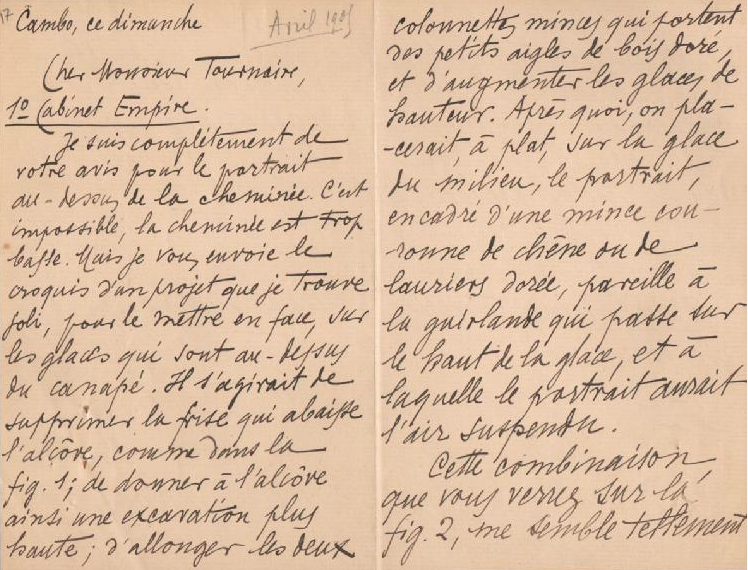 17
Cambo, ce dimanche
Avril 1905
Cher Monsieur Tournaire,
1º Cabinet Empire.
Je suis complétement de
votre avis pour le portrait
au-dessus de la cheminée. C'est
impossible, la cheminée est trop
basse. Mais je vous envoie le
croquis d'un projet que je trouve
joli, pour le mettre en face, sur
les glaces qui sont au-dessus
du canapé. Il s'agirait de
supprimer la frise qui abaisse
l'alcôve, comme dans la
fig. 1; de donner à l'alcôve
ainsi une excavation plus
haute; d'allonger les deux
colonnettes minces qui portent
des petits aigles de bois doré,
et d'augmenter les glaces de
hauteur. Après quoi, on pla-
-cerait, à plat, sur la glace
du milieu, le portrait,
encadré d'une mince cou-
-ronne de chêne ou de
lauriers dorée, pareille à
la guirlande qui passe sur
le haut de la glace, et à
laquelle le portrait aurait
l'air suspendu.
Cette combinaison,
que vous verrez sur la
fig. 2, me semble tellement